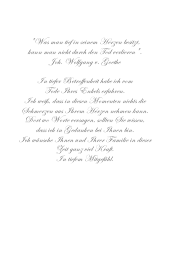 "Was man tief in seinem Herzen besitzt,
kann man nicht durch den Tod verlieren."
Joh. Wolfgang v. Goethe
In tiefer Betroffenheit habe ich vom
Tode Ihres Enkels erfahren.
Ich weiß, dass in diesen Momenten nichts die
Schmerzen aus Ihrem Herzen nehmen kann.
Dort wo Worte versagen, sollten Sie wissen,
dass ich in Gedanken bei Ihnen bin.
Ich wünsche Ihnen und Ihrer Familie in dieser
Zeit ganz viel Kraft.
In tiefem Mitgefühl.